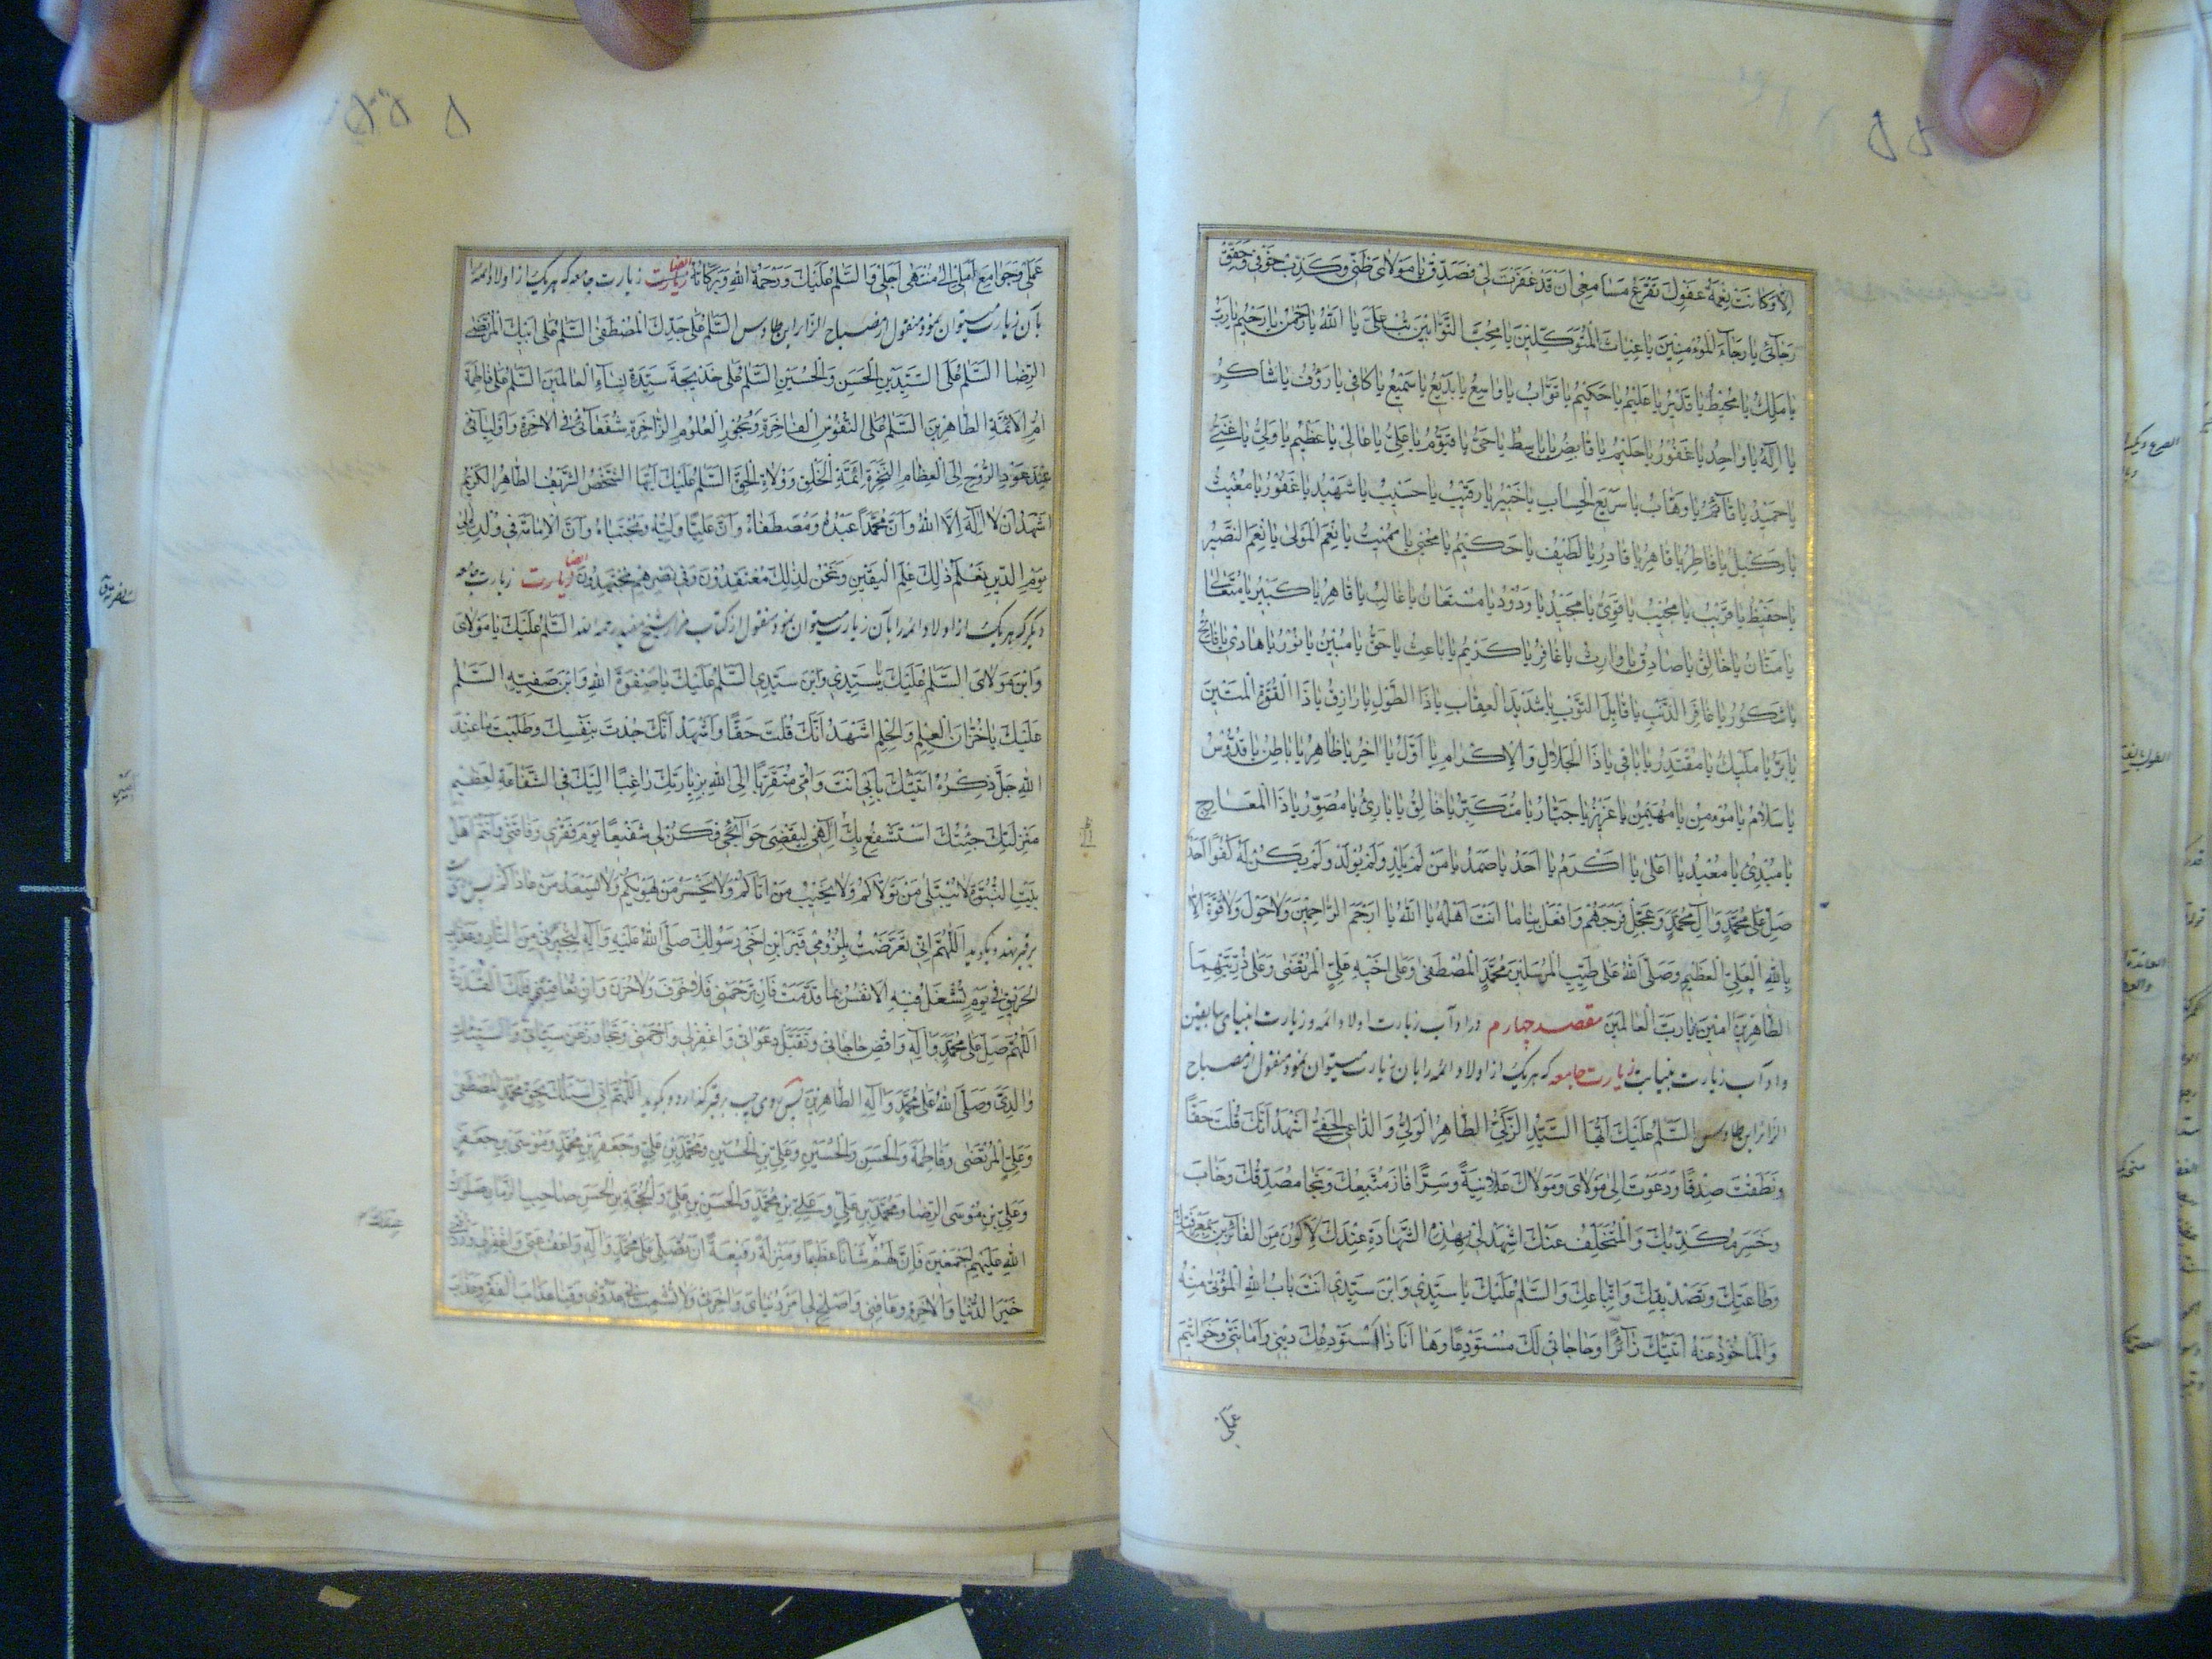 اِلّا وَكانَتْ نِعْمَةُ عَفْوِكَ تَقْرَعُ مَسامِعِي اَنْ قَدْ غَفَرْتَ لِي فَصَدِّقْ يا مَوْلايَ ظَنّي وَكَذِّبْ خَوْفي وَحَقِّقْ
رَجائي يا رَجاءَ الْمُؤْمِنينَ يا غِياثَ الْمُتَوَكِّلينَ يا مُحِبَّ التَّوّابينَ تُبْ عَلَيَّ يا اَللهُ يا رَحْمنُ يا رَحيمُ يا رَبُّ
يا مَلِكُ يا مُحيطُ يا قَديرُ يا عَليمُ يا حَكيمُ يا تَوّابُ يا واسِعُ يا بَديعُ يا سَميعُ يا كافي يا رَؤُفُ يا شاكِرُ
يا اِلهُ يا واحِدُ يا غَفُورُ يا حَليمُ يا قابِضُ يا باسِطُ يا حَيُّ يا قَيُّومُ يا عَلِيُّ يا عالي يا عَظيمُ يا وَلِيُّ يا غَنِيُّ
يا حَميدُ يا قائِمُ يا وَهّابُ يا سَريعَ الْحِسابِ يا خَبيرُ يا رَقيبُ يا حَسيبُ يا شَهيدُ يا غَفُورُ يا مُغيثُ
يا وَكيلُ يا فاطِرُ يا قاهِرُ يا قادِرُ يا لَطيفُ يا حَكيمُ يا مُحيي يا مُميتُ يا نِعْمَ الْمَوْلى يا نِعْمَ النَّصيرُ
يا حَفيظُ يا قَريبُ يا مُجيبُ يا قَوِيُّ يا مَجيدُ يا وَدُودُ يا مُسْتَعانُ يا غالِبُ يا قاهِرُ يا كَبيرُ يا مُتَعالي
يا مَنّانُ يا خالِقُ يا صادِقُ يا وارِثُ يا غافِرُ يا كَريمُ يا باعِثُ يا حَقُّ يا مُبينُ يا نُورُ يا هادي يا فاتِحُ
يا شَكُورُ يا غافِرَ الذَّنْبِ يا قابِلَ التَّوْبِ يا شَديدَ الْعِقابِ يا ذَا الطَّوْلِ يا رازِقُ يا ذَا الْقُوَّةِ الْمَتينَ
يا بَرُّ يا مَليكُ يا مُقْتَدِرُ يا باقي يا ذَا الْجَلالِ وَالْاِكْرامِ يا اَوَّلُ يا اخِرُ يا ظاهِرُ يا باطِنُ يا قُدُّوسُ
يا سَلامُ يا مُؤْمِنُ يا مُهَيْمِنُ يا عَزيزُ يا جَبّارُ يا مُتَكَبِّرُ يا خالِقُ يا بارِئُ يا مُصَوِّرُ يا ذَا الْمَعارِجِ
يا مُبْدِئُ يا مُعيدُ يا اَعْلى يا اَكْرَمُ يا اَحَدُ يا صَمَدُ يا مَنْ لَمْ يَلِدْ وَلَمْ يُولَدْ وَلَمْ يَكُنْ لَهُ كُفُوًا اَحَدٌ
صَلِّ عَلى مُحَمَّدٍ وَآلِ مُحَمَّدٍ وَعَجِّلْ فَرَجَهُمْ وَافْعَلْ بِنا ما اَنْتَ اَهْلُهُ يا اَللهُ يا اَرْحَمَ الرّاحِمينَ وَلا حَوْلَ وَلا قُوَّةَ اِلّا
بِاللهِ الْعَلِيِّ الْعَظيمِ وَصَلَّى اللهُ عَلى طَيِّبِ الْمُرْسَلينَ مُحَمَّدٍ الْمُصْطَفى وَعَلى اَخيهِ عَلِيٍّ الْمُرْتَضى وَعَلى ذُرِّيَّتِهِما
الطّاهِرينَ امينَ يا رَبَّ الْعالَمينَ مقصد چهارم در آداب زيارت اولاد ائمه و زيارت انبياى سابقين
و آداب زيارت بنيابت زيارت جامعه كه هر يك از اولاد ائمه را بآن زيارت ميتوان نمود منقول از مصباح
الزائر ابن طاوس اَلسَّلامُ عَلَيْكَ اَيُّهَا السَّيِّدُ الزَّكِيُّ الطّاهِرُ الْوَلِيُّ وَالدّاعِي الْحَفِيُّ اَشْهَدُ اَنَّكَ قُلْتَ حَقًّا
وَنَطَقْتَ صِدْقًا وَدَعَوْتَ اِلى مَوْلايَ وَمَوْلاكَ عَلانِيَةً وَسِرًّا فازَ مُتَّبِعُكَ وَنَجا مُصَدِّقُكَ وَخابَ
وَخَسِرَ مُكَذِّبُكَ وَالْمُتَخَلِّفُ عَنْكَ اِشْهَدْ لي بِهذِهِ الشَّهادَةِ عِنْدَكَ لِاَكُونَ مِنَ الْفائِزينَ بِمَعْرِفَتِكَ
وَطاعَتِكَ وَتَصْديقِكَ وَاتِّباعِكَ وَالسَّلامُ عَلَيْكَ يا سَيِّدي وَابْنَ سَيِّدي اَنْتَ بابُ اللهِ الْمُؤْتى مِنْهُ
وَالْمَاْخُوذُ عَنْهُ اَتَيْتُكَ زائِرًا وَحاجاتي لَكَ مُسْتَوْدِعًا وَها اَنَا ذا اَسْتَوْدِعُكَ ديني وَاَمانَتي وَخَواتيمَ
عَمَلي
عَمَلي وَجَوامِعَ اَمَلي اِلى مُنْتَهى اَجَلي وَالسَّلامُ عَلَيْكَ وَرَحْمَةُ اللهِ وَبَرَكاتُهُ ايضا زيارت زيارت جامعه كه هر يك از اولاد ائمه را
بآن زيارت ميتوان نمود منقول از مصباح الزائر ابن طاوس اَلسَّلامُ عَلى جَدِّكَ الْمُصْطَفى اَلسَّلامُ عَلى اَبيكَ الْمُرْتَضى
الرِّضا اَلسَّلامُ عَلَى السَّيِّدَيْنِ الْحَسَنِ وَالْحُسَيْنِ اَلسَّلامُ عَلى خَديجَةَ سَيِّدَةِ نِساءِ الْعالَمينَ اَلسَّلامُ عَلى فاطِمَةَ
اُمِّ الْاَئِمَّةِ الطّاهِرينَ اَلسَّلامُ عَلَى النُّفُوسِ الْفاخِرَةِ وَبُحُورِ الْعُلُومِ الزّاخِرَةِ شُفَعائي فِي الْاخِرَةِ وَاَوْلِيائي
عِنْدَ عَوْدِ الرُّوحِ اِلَى الْعِظامِ النَّخِرَةِ اَئِمَّةِ الْخَلْقِ وَوُلاةِ الْحَقِّ اَلسَّلامُ عَلَيْكَ اَيُّهَا الشَّخْصُ الشَّريفُ الطّاهِرُ الْكَريمُ
اَشْهَدُ اَنْ لا اِلهَ اِلَّا اللهُ وَاَنَّ مُحَمَّدًا عَبْدُهُ وَمُصْطَفاهُ وَاَنَّ عَلِيًّا وَلِيُّهُ وَمُجْتَباهُ وَاَنَّ الْاِمامَةَ في وُلْدِهِ اِلى
يَوْمِ الدّينِ نَعْلَمُ ذلِكَ عِلْمَ الْيَقينِ وَنَحْنُ لِذلِكَ مُعْتَقِدُونَ وَفي نَصْرِهِمْ مُجْتَهِدُونَ ايضا زيارت زيارت جامعه
ديگر كه هر يك از اولاد ائمه را بآن زيارت ميتوان نمود منقول از كتاب مزار شيخ مفيد رحمه الله اَلسَّلامُ عَلَيْكَ يا مَوْلايَ
وَابْنَ مَوْلايَ اَلسَّلامُ عَلَيْكَ يا سَيِّدي وَابْنَ سَيِّدي اَلسَّلامُ عَلَيْكَ يا صَفْوَةَ اللهِ وَابْنَ صَفِيِّهِ اَلسَّلامُ
عَلَيْكَ يا خُزّانَ الْعِلْمِ وَالْحِلْمِ اَشْهَدُ اَنَّكَ قُلْتَ حَقًّا وَاَشْهَدُ اَنَّكَ جُدْتَ بِنَفْسِكَ وَطَلَبْتَ ما عِنْدَ
اللهِ جَلَّ ذِكْرُهُ اَتَيْتُكَ بِاَبي اَنْتَ وَاُمّي مُتَقَرِّبًا اِلَى اللهِ بِزِيارَتِكَ راغِبًا اِلَيْكَ فِي الشَّفاعَةِ لِعَظيمِ
مَنْزِلَتِكَ جِئْتُكَ اَسْتَشْفِعُ بِكَ اِلهي لِيَقْضِيَ حَوائِجي فَكُنْ لي شَفيعًا يَوْمَ فَقْري وَفاقَتي وَاَنْتُمْ اَهْلُ
بَيْتِ النُّبُوَّةِ لا يُبْتَلى مَنْ تَوَلّاكُمْ وَلا يَخيبُ مَنْ اَتاكُمْ وَلا يَخْسَرُ مَنْ يَهْويكُمْ وَلا يَسْعَدُ مَنْ عاداكُمْ پس
بر قبر نهد و بگويد اَللّهُمَّ اِنّي تَعَرَّضْتُ بِلُزُومي قَبْرَ ابْنِ اَخي رَسُولِكَ صَلَّى اللهُ عَلَيْهِ وَآلِهِ لِتُجيرَني مِنَ النّارِ وَعَذابِ
الْحَريقِ في يَوْمٍ تُشْغَلُ فيهِ الْاَنْفُسُ بِما قَدَّمَتْ فَاِنْ تَرْحَمْني فَلا خَوْفَ وَلا حُزْنَ وَاِنْ تُعاقِبْني فَلَكَ الْقُدْرَةُ
اَللّهُمَّ صَلِّ عَلى مُحَمَّدٍ وَآلِهِ وَاقْضِ حاجاتي وَتَقَبَّلْ دَعَواتي وَاغْفِرْلي وَارْحَمْني وَتَجاوَزْ عَنْ سَيِّئاتي وَ
وَالِدَيَّ وَصَلَّى اللهُ عَلى مُحَمَّدٍ وَآلِهِ الطّاهِرينَ پس روى چپ بر قبر گذارد و بگويد اَللّهُمَّ اِنّي اَسْئَلُكَ بِحَقِّ مُحَمَّدٍ الْمُصْطَفى
وَعَلِيٍّ الْمُرْتَضى وَفاطِمَةَ وَالْحَسَنِ وَالْحُسَيْنِ وَعَلِيِّ بْنِ الْحُسَيْنِ وَمُحَمَّدِ بْنِ عَلِيٍّ وَجَعْفَرِ بْنِ مُحَمَّدٍ وَمُوسَى بْنِ جَعْفَرٍ
وَعَلِيِّ بْنِ مُوسَى الرِّضا وَمُحَمَّدِ بْنِ عَلِيٍّ وَعَلِيِّ بْنِ مُحَمَّدٍ وَالْحَسَنِ بْنِ عَلِيٍّ وَالْحُجَّةِ بْنِ الْحَسَنِ صاحِبِ الزَّمانِ صَلَواتُ
اللهِ عَلَيْهِمْ اَجْمَعينَ فَاِنَّ لَهُمْ شَاْنًا عَظيمًا وَمَنْزِلَةً رَفيعَةً اَنْ تُصَلِّيَ عَلى مُحَمَّدٍ وَآلِهِ وَاعْفُ عَنّي وَاغْفِرْلي وَارْزُقْني
خَيْرَ الدُّنْيا وَالْاخِرَةِ وَعافِني وَاَصْلِحْ لي اَمْرَ دُنْيايَ وَاخِرَتي وَلا تُشْمِتْ بي عَدُوّي وَقِنا عَذابَ الْفَقْرِ وَعَذابَ